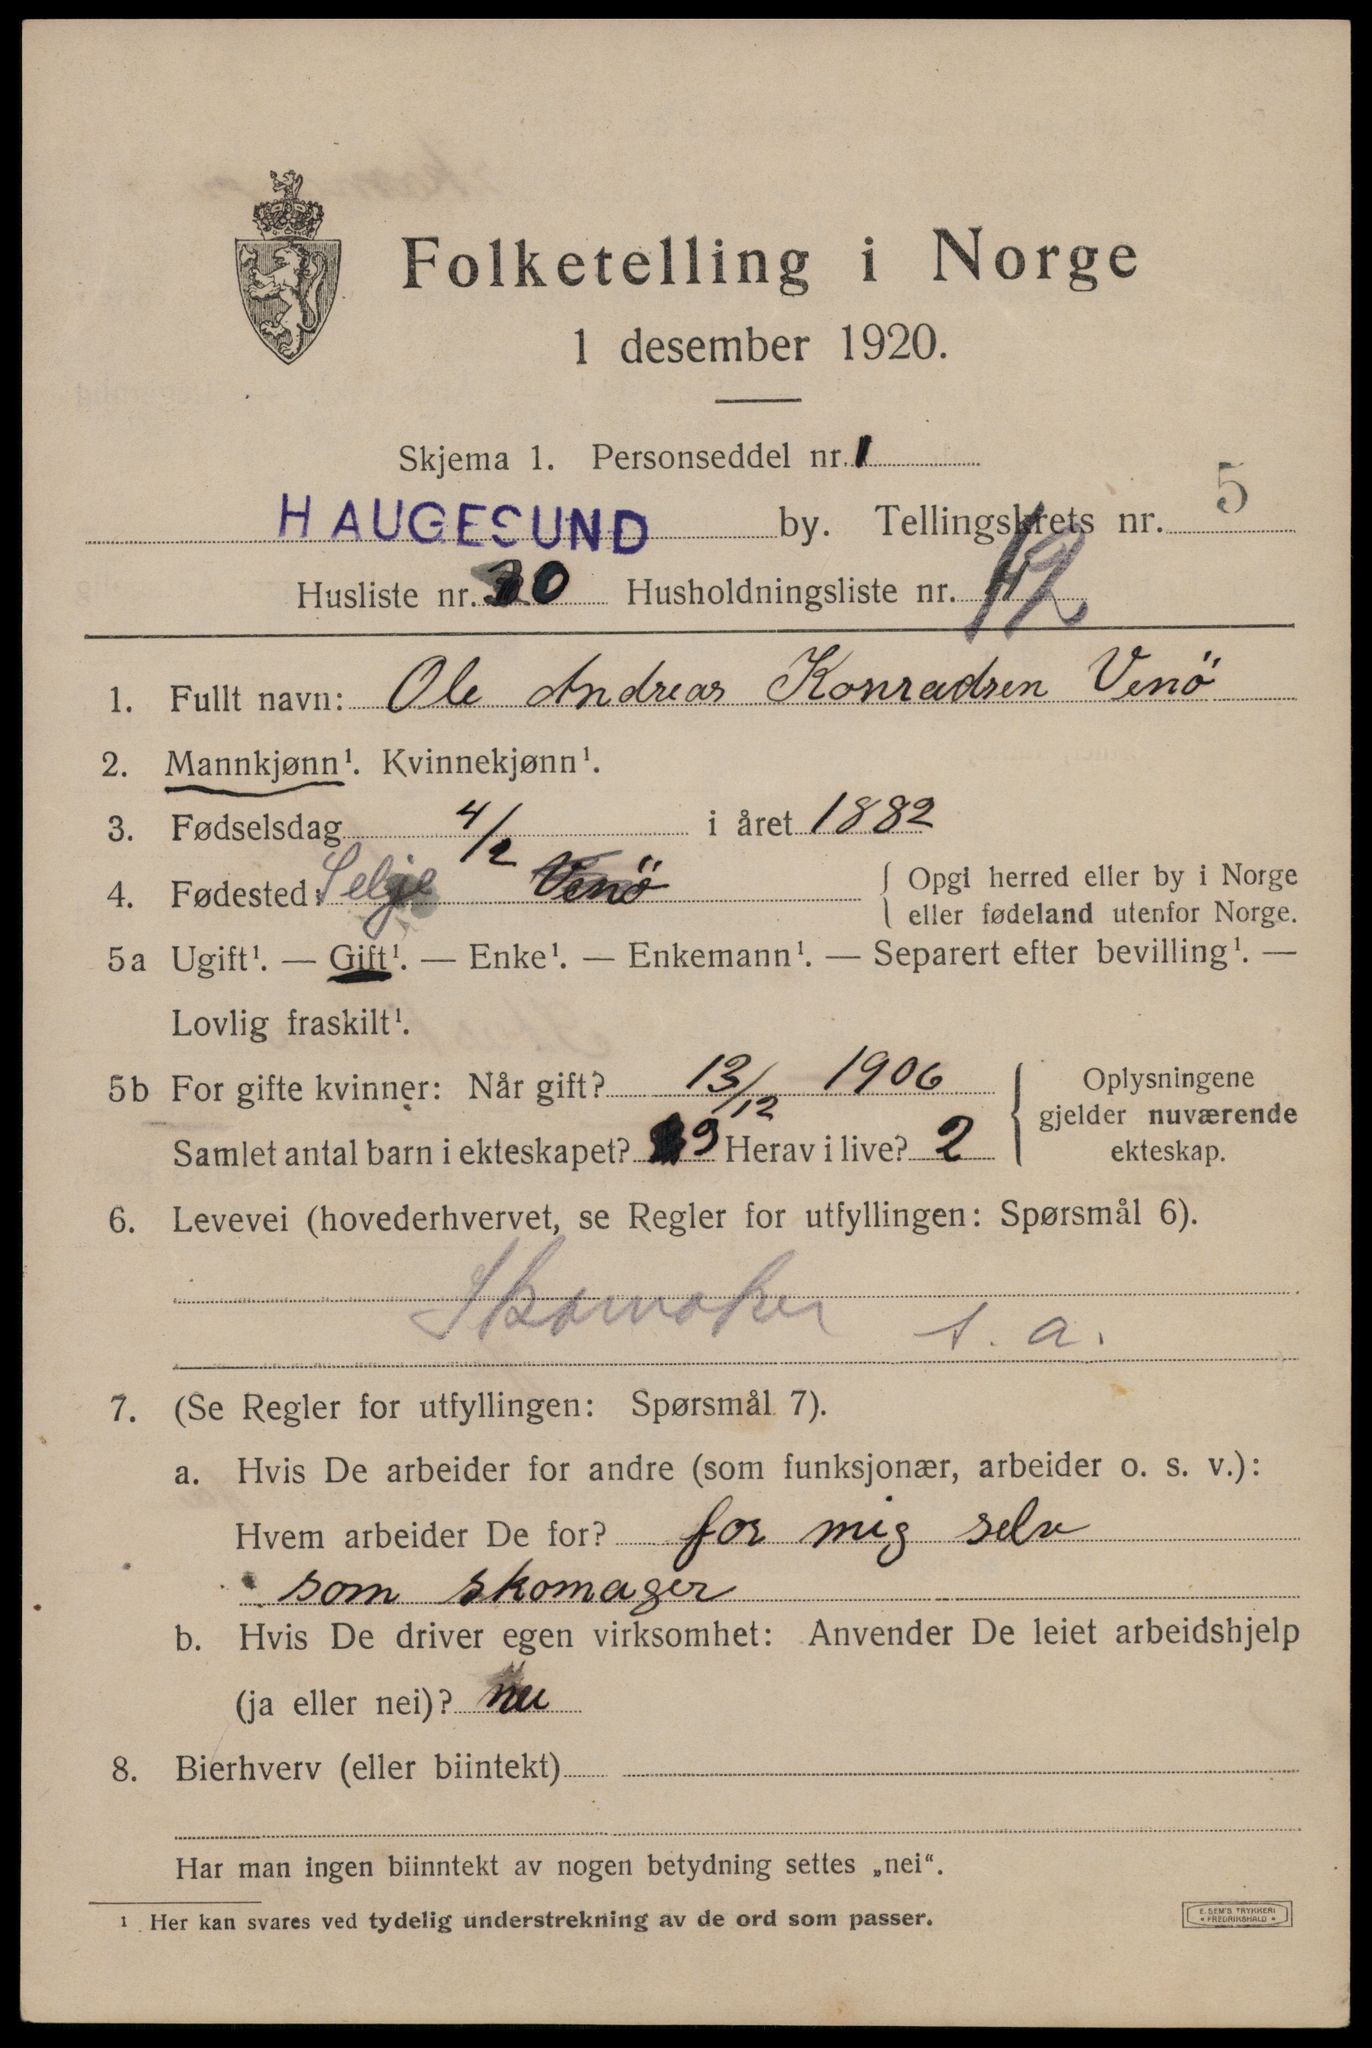 Folketelling i Norge
1 desember 1920.
Skjema 1. Personseddel nr. 1
HAUGESUND by. Tellingskrets nr. 5
Husliste nr. 30 Husholdningsliste nr. 12
1. Fullt navn: Ole Andreas Konradsen Venö
2. Mannkjønn¹. Kvinnekjønn¹.
3. Fødselsdag 4/2 i året 1882
4. Fødested: Selje Venö { Opgi herred eller by i Norge
eller fødeland utenfor Norge.
5a Ugift¹. — Gift¹. — Enke¹. — Enkemann¹. — Separert efter bevilling¹. —
Lovlig fraskilt¹.
5b For gifte kvinner: Når gift? 13/12 1906
Samlet antal barn i ekteskapet? 3 Herav i live? 2
Oplysningene
gjelder nuværende
ekteskap.
6. Levevei (hovederhvervet, se Regler for utfyllingen: Spørsmål 6).
Skomaker s. a.
7. (Se Regler for utfyllingen: Spørsmål 7).
a. Hvis De arbeider for andre (som funksjonær, arbeider o. s. v.):
Hvem arbeider De for? for mig selv
som skomager
b. Hvis De driver egen virksomhet: Anvender De leiet arbeidshjelp
(ja eller nei)?
8. Bierhverv (eller biintekt)
Har man ingen biinntekt av nogen betydning settes „nei“.
¹ Her kan svares ved tydelig understrekning av de ord som passer.
E. SEM'S TRYKKERI
FREDRIKSHALD